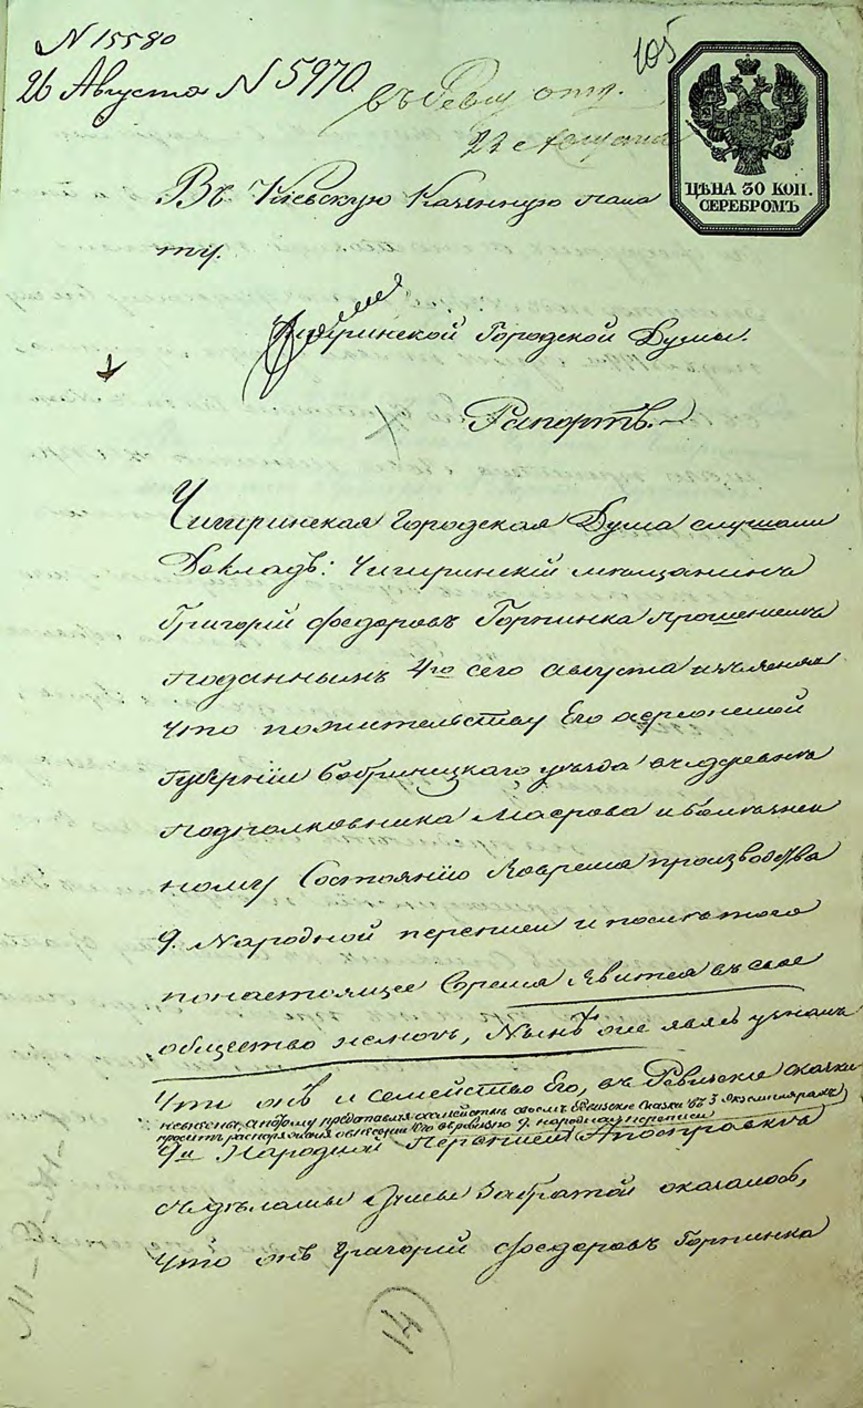 N 15580
105
26 Августа N 5970.
въ Ревиз отд.
22 Августа
ЦѢНА 30 КОП.
СЕРЕБРОМЪ
Въ Кіевскую Казенную пала
ту.
Чигиринской Городской Думы.
Рапортъ.
Чигиринская Городская Дума слушали
Докладъ: Чигиринскій мѣщанинъ
Григорій Федоровъ Горпинка прошеніемъ
поданнымъ 4го сего Августа изъяснял
что по жительству Его Херсонской
Губерніи Бобринецкаго уѣзда въ деревнѣ
подполковника Маерова и болѣзнен
ному Состоянію во время производства
9. Народной переписи и послѣ того
по настоящее время явится въ свое
общество не могъ, Нынѣ же явясь узналъ
Что онъ и семейство Его, въ Ревизские сказки
невнесены, а потому представляя о семействѣ своемъ Ревизские Сказки въ 3 экземплярахъ
проситъ распоряженія о внесении Его въ ревизію 9. народной переписи
9й Народной Переписи, А по справкѣ
съ дѣлами Думы Забратой оказалось,
Что онъ Григорий Федоровъ Горпинка
14